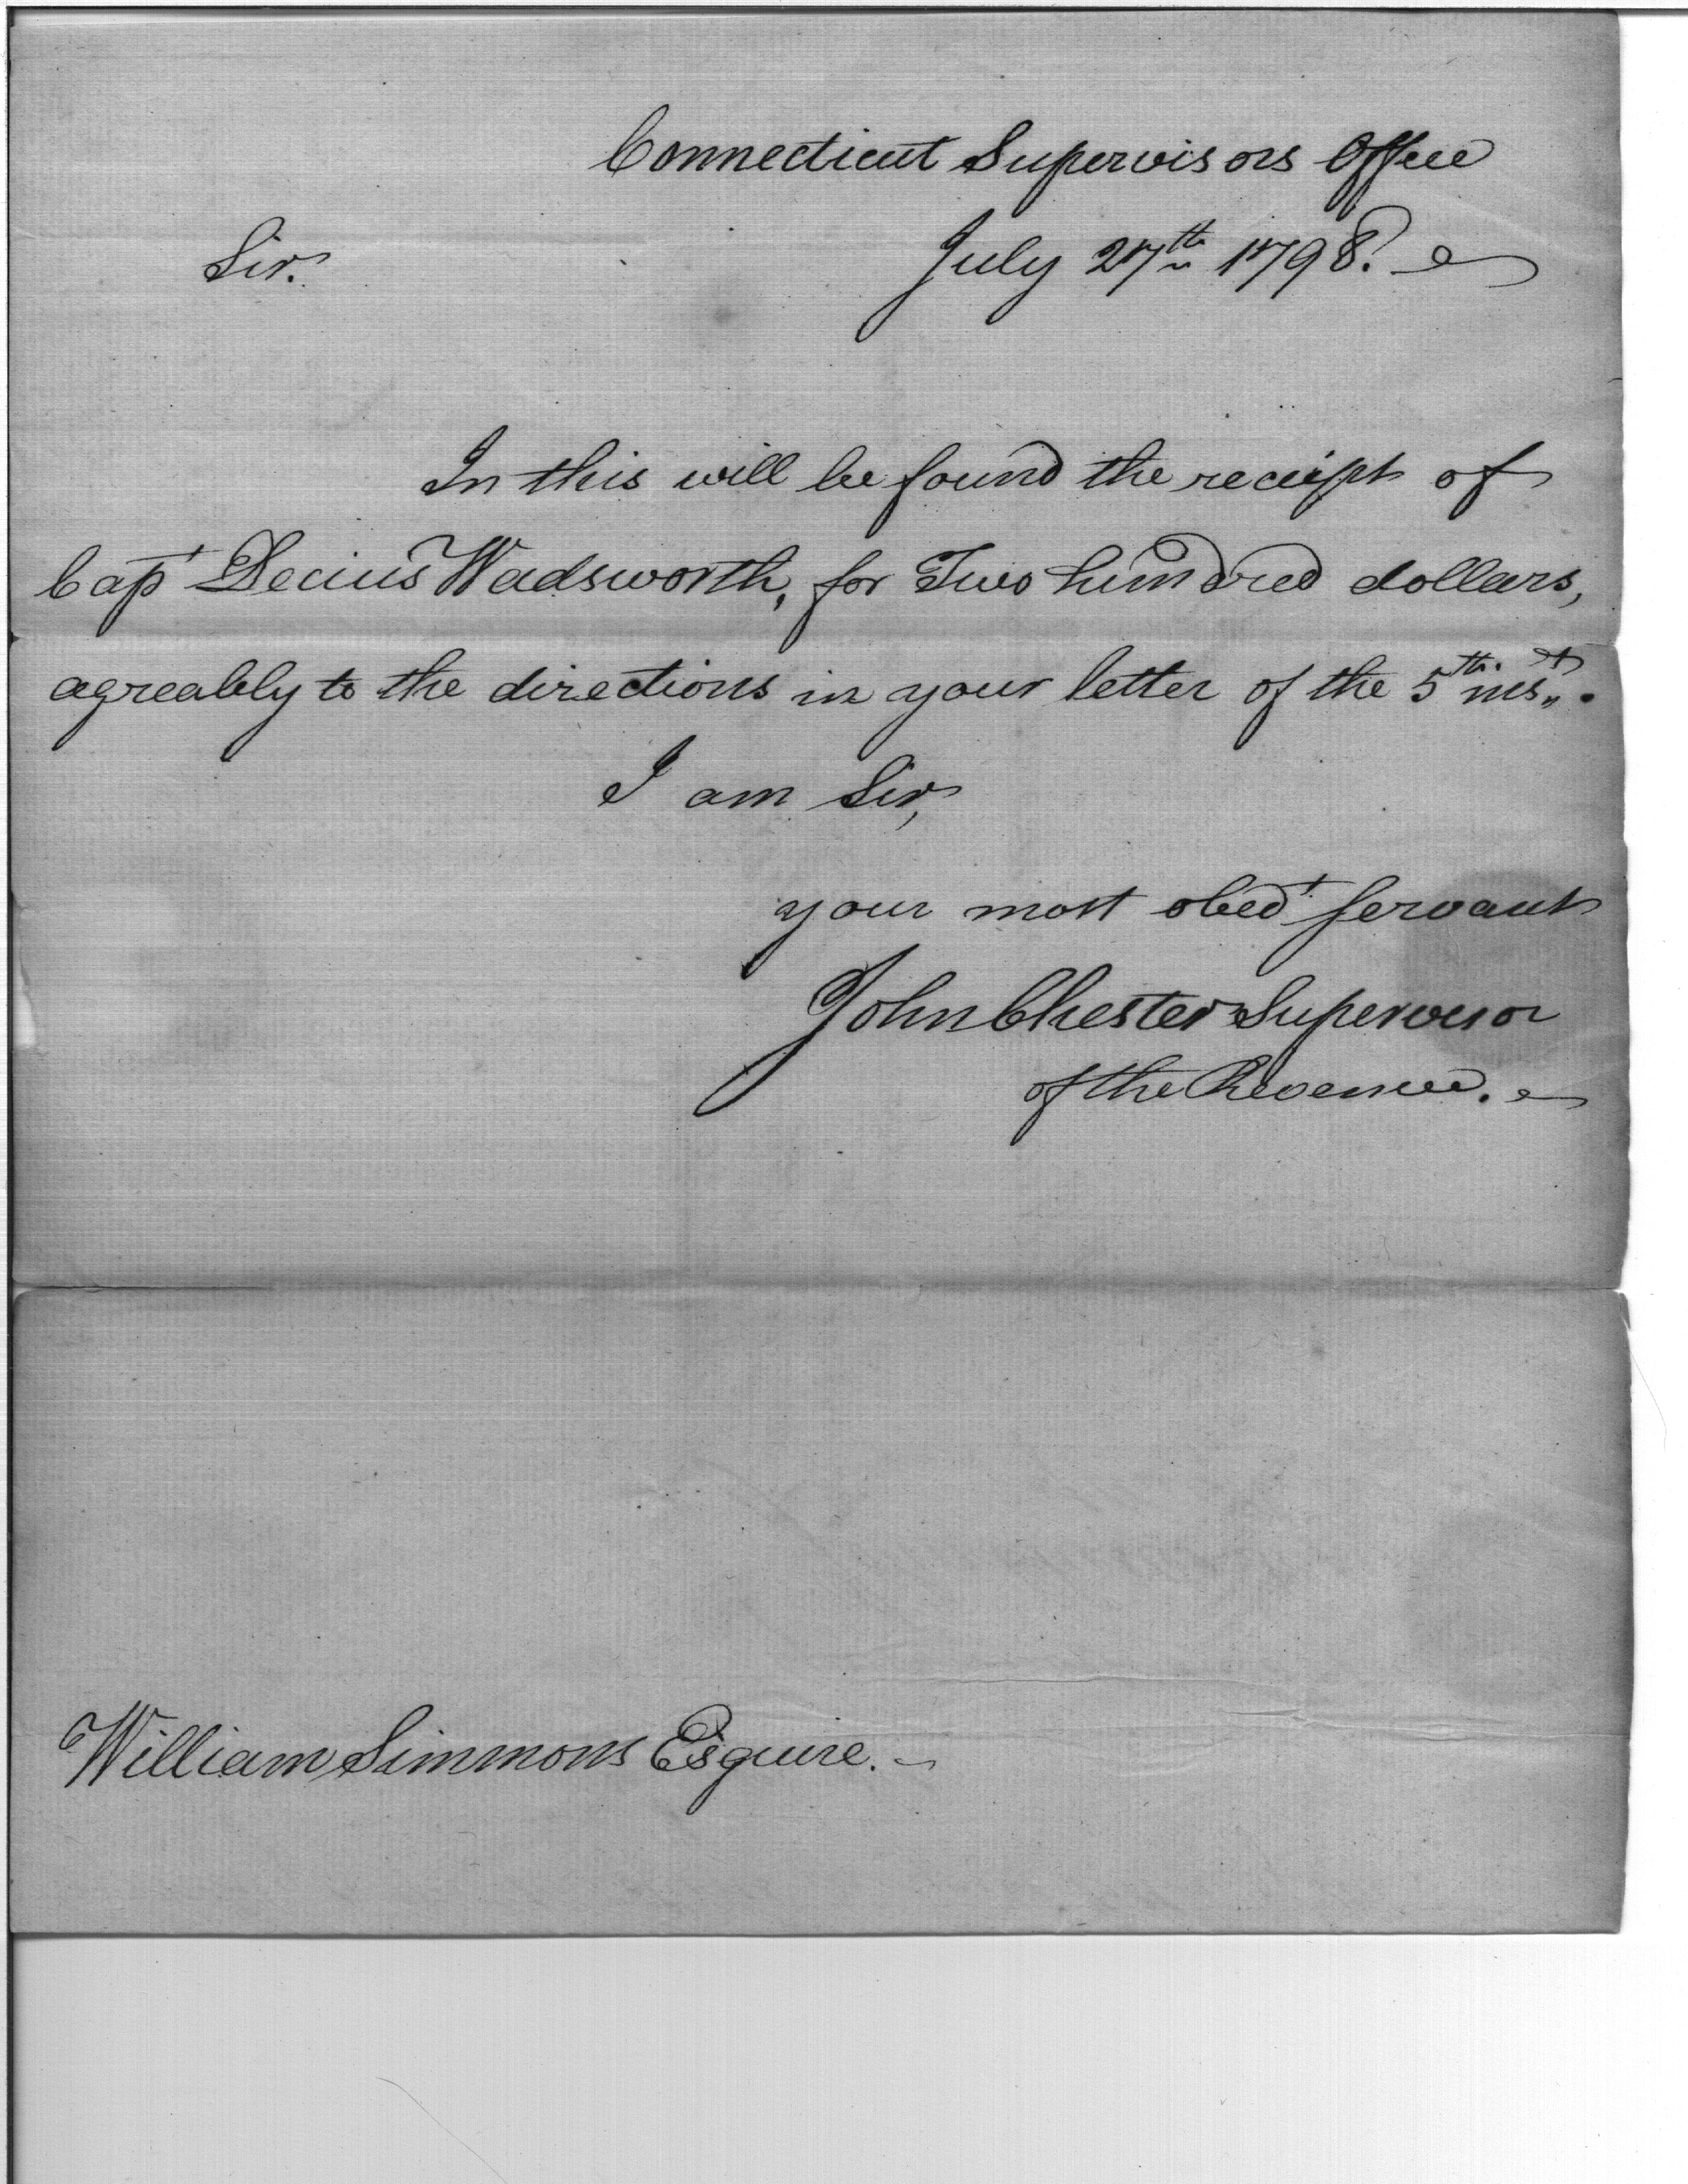 Connecticut Supervisors Office
Sir. July 27th 1798.
In this will be found the receipt of
Capt Decius Wadsworth, for Two hundred dollars,
agreably to the directions in your letter of the 5th. inst.
I am Sir,
your most obedt servant
John Chester Supervisor
of the Revenue.
William Simmons Esquire.